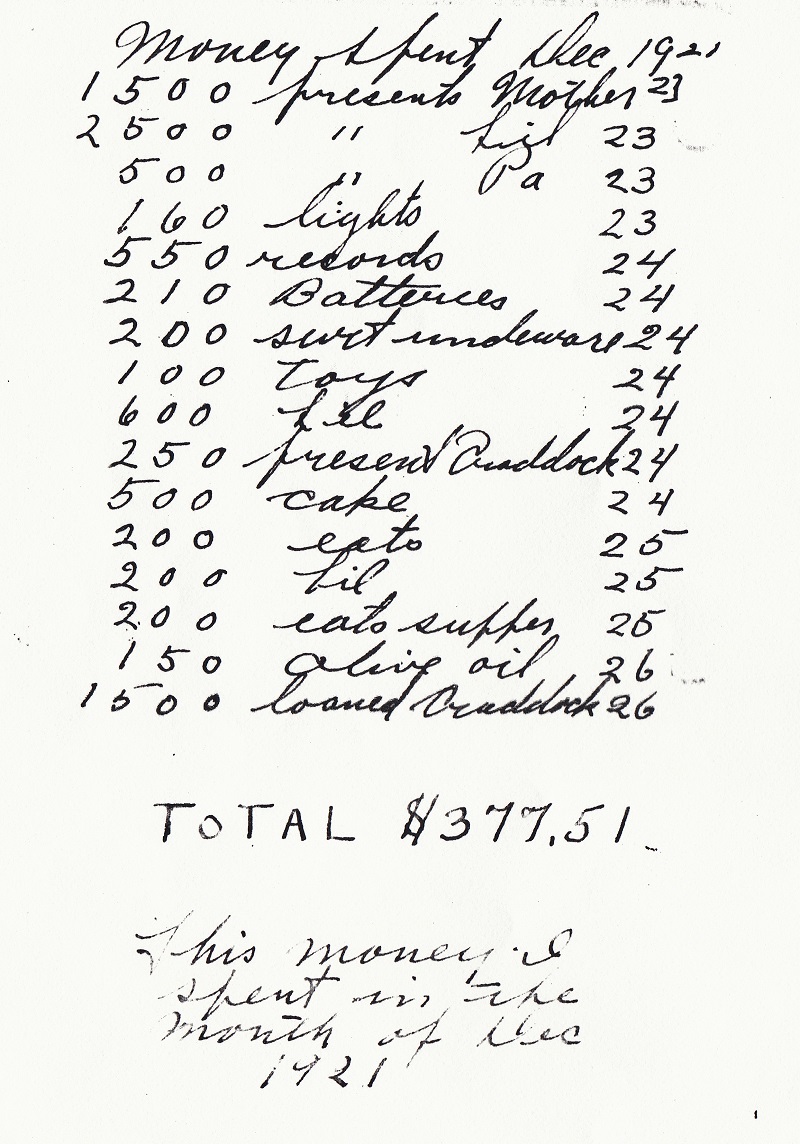 Money spent Dec 1921
1500 presents Mother 23
2500 " 23
500 " Pa 23
160 lights 23
550 records 24
210 Batteries 24
200 undeware 24
100 Toys 24
600 24
250 present Craddock 24
500 cake 24
200 eats 25
200 25
200 eats supper 25
150 Olive oil 26
1500 loaned Craddock 26
TOTAL $377.51
This money I
spent in the
Month of Dec
1921
1